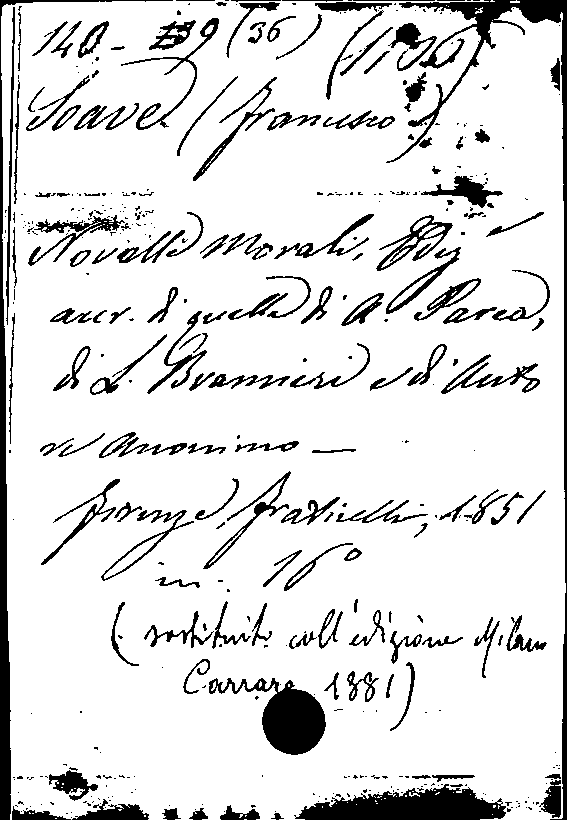 140 - 39 (36)
Soave (Francesco)
Novelle Morali. Ediz.e
accr. di quelle di A. Parea,
di L. Bramieri e di Auto
re Anonimo —
Firenze, Fraticelli, 1851
in. 16°
(sostituito coll'edizione Milano
Carrara 1881)